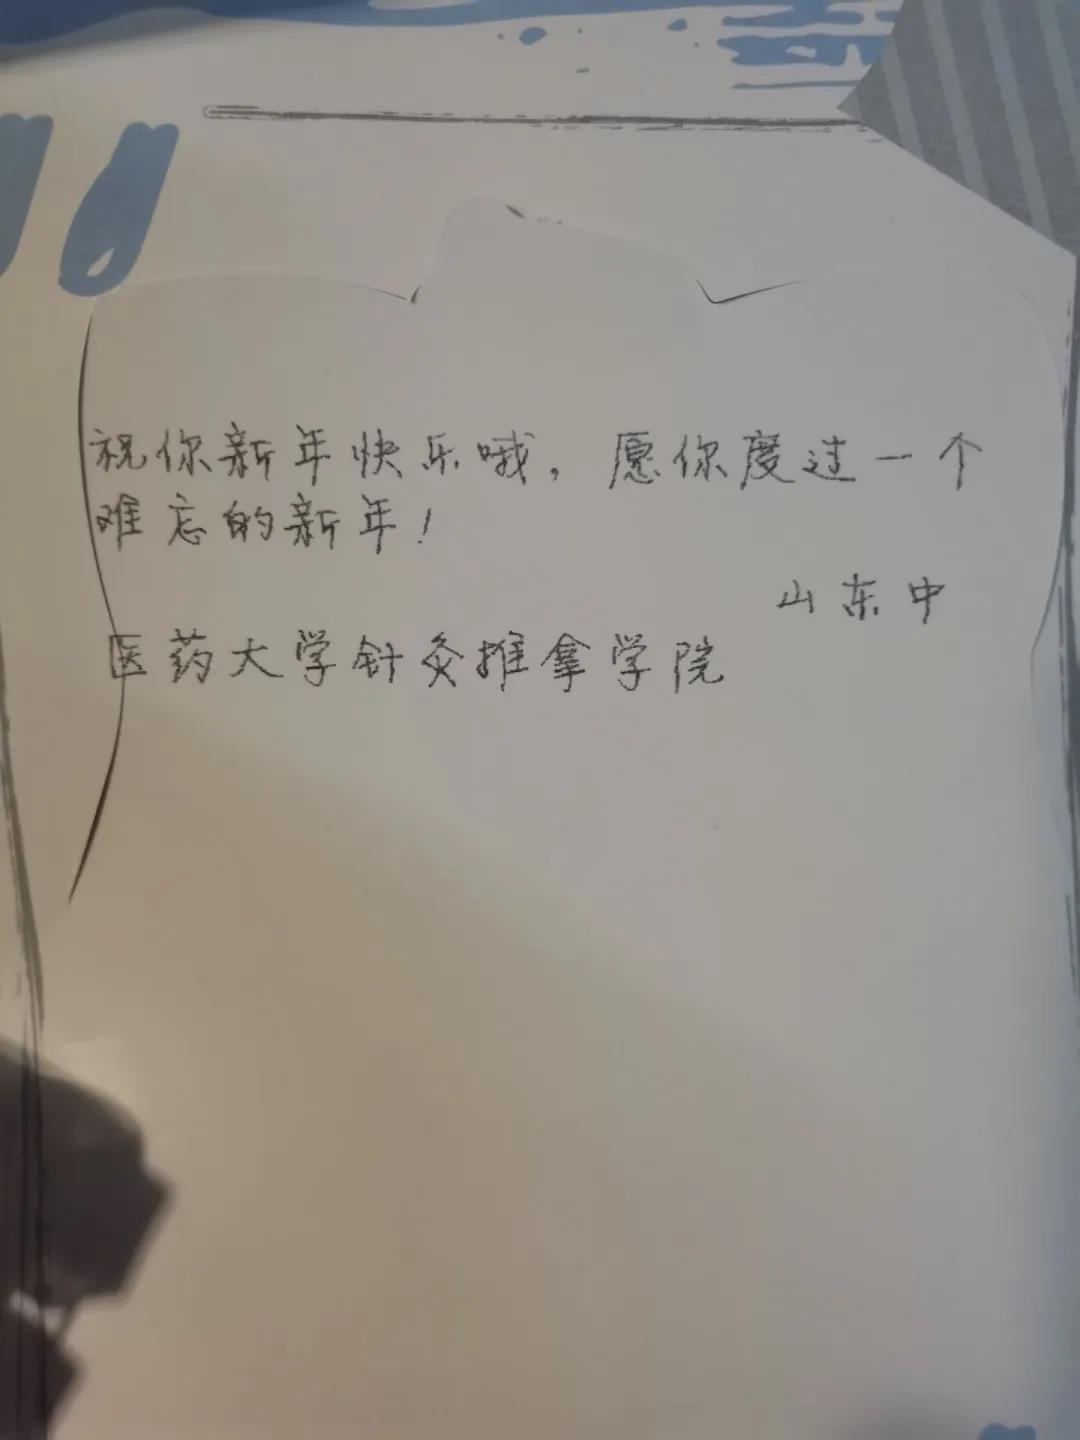 祝你新年快乐哦，愿你度过一个
难忘的新年！
山东中
医药大学针灸推拿学院